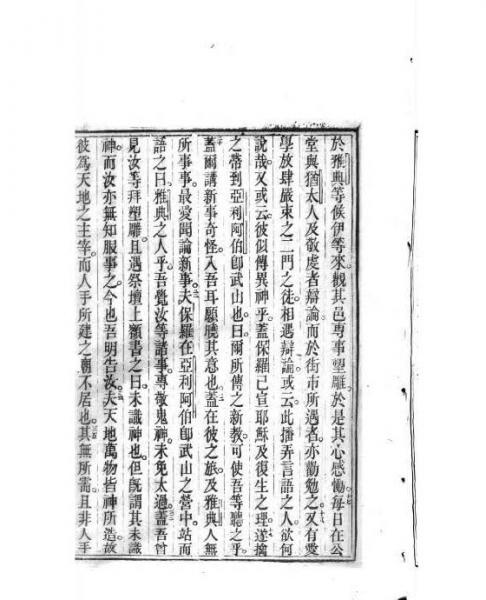 於雅典等候伊等來。觀其邑專事塑雕於是其心感慟。每日在公
堂與猶太人及敬虔者辯論而於街市所遇者亦勸勉之又有愛
學放肆嚴束之二門之徒相遇辯論。或云此播弄言語之人欲何
說哉。又或云彼似傳異神乎蓋保羅已宣耶穌及復生之理。遂擒
之帶到亞利阿伯卽武山也。曰爾所傳之新教可使吾等聽之乎。
蓋爾講新事奇怪入吾耳願曉其意也。蓋在彼之旅及雅典人無
所事事。最愛聞論新事。夫保羅在亞利阿伯卽武山之營中站而
語之曰雅典之人乎吾覺汝等諸事專敬鬼神未免太過。蓋吾曾
見汝等拜塑雕且遇祭壇上額書之曰未識神也但旣謂其未識
神而汝亦無知服事之今也吾明告汝。夫天地萬物皆神所造故
彼爲天地之主宰。而人手所建之廟不居也。其無所需且非人手